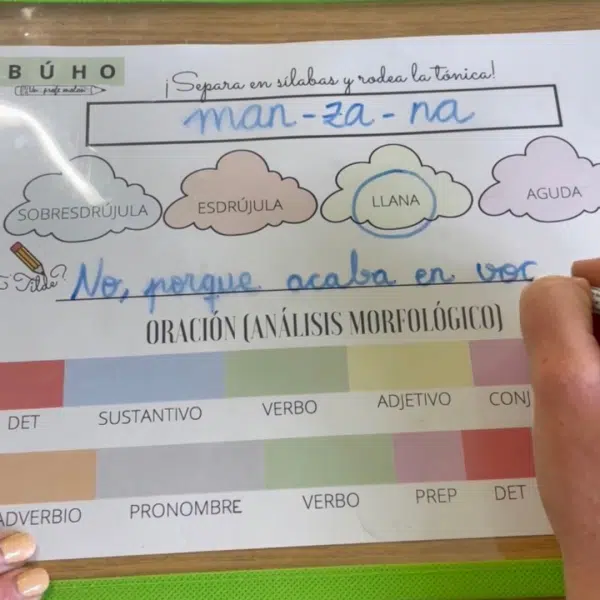 BÚHO
¡Separa en sílabas y rodea la tónica!
man-za-na
SOBRESDRÚJULA ESDRÚJULA LLANA AGUDA
Tilde?
No, porque acaba en voc
ORACIÓN (ANÁLISIS MORFOLÓGICO)
DET SUSTANTIVO VERBO ADJETIVO CONJ
ADVERBIO PRONOMBRE VERBO PREP DET